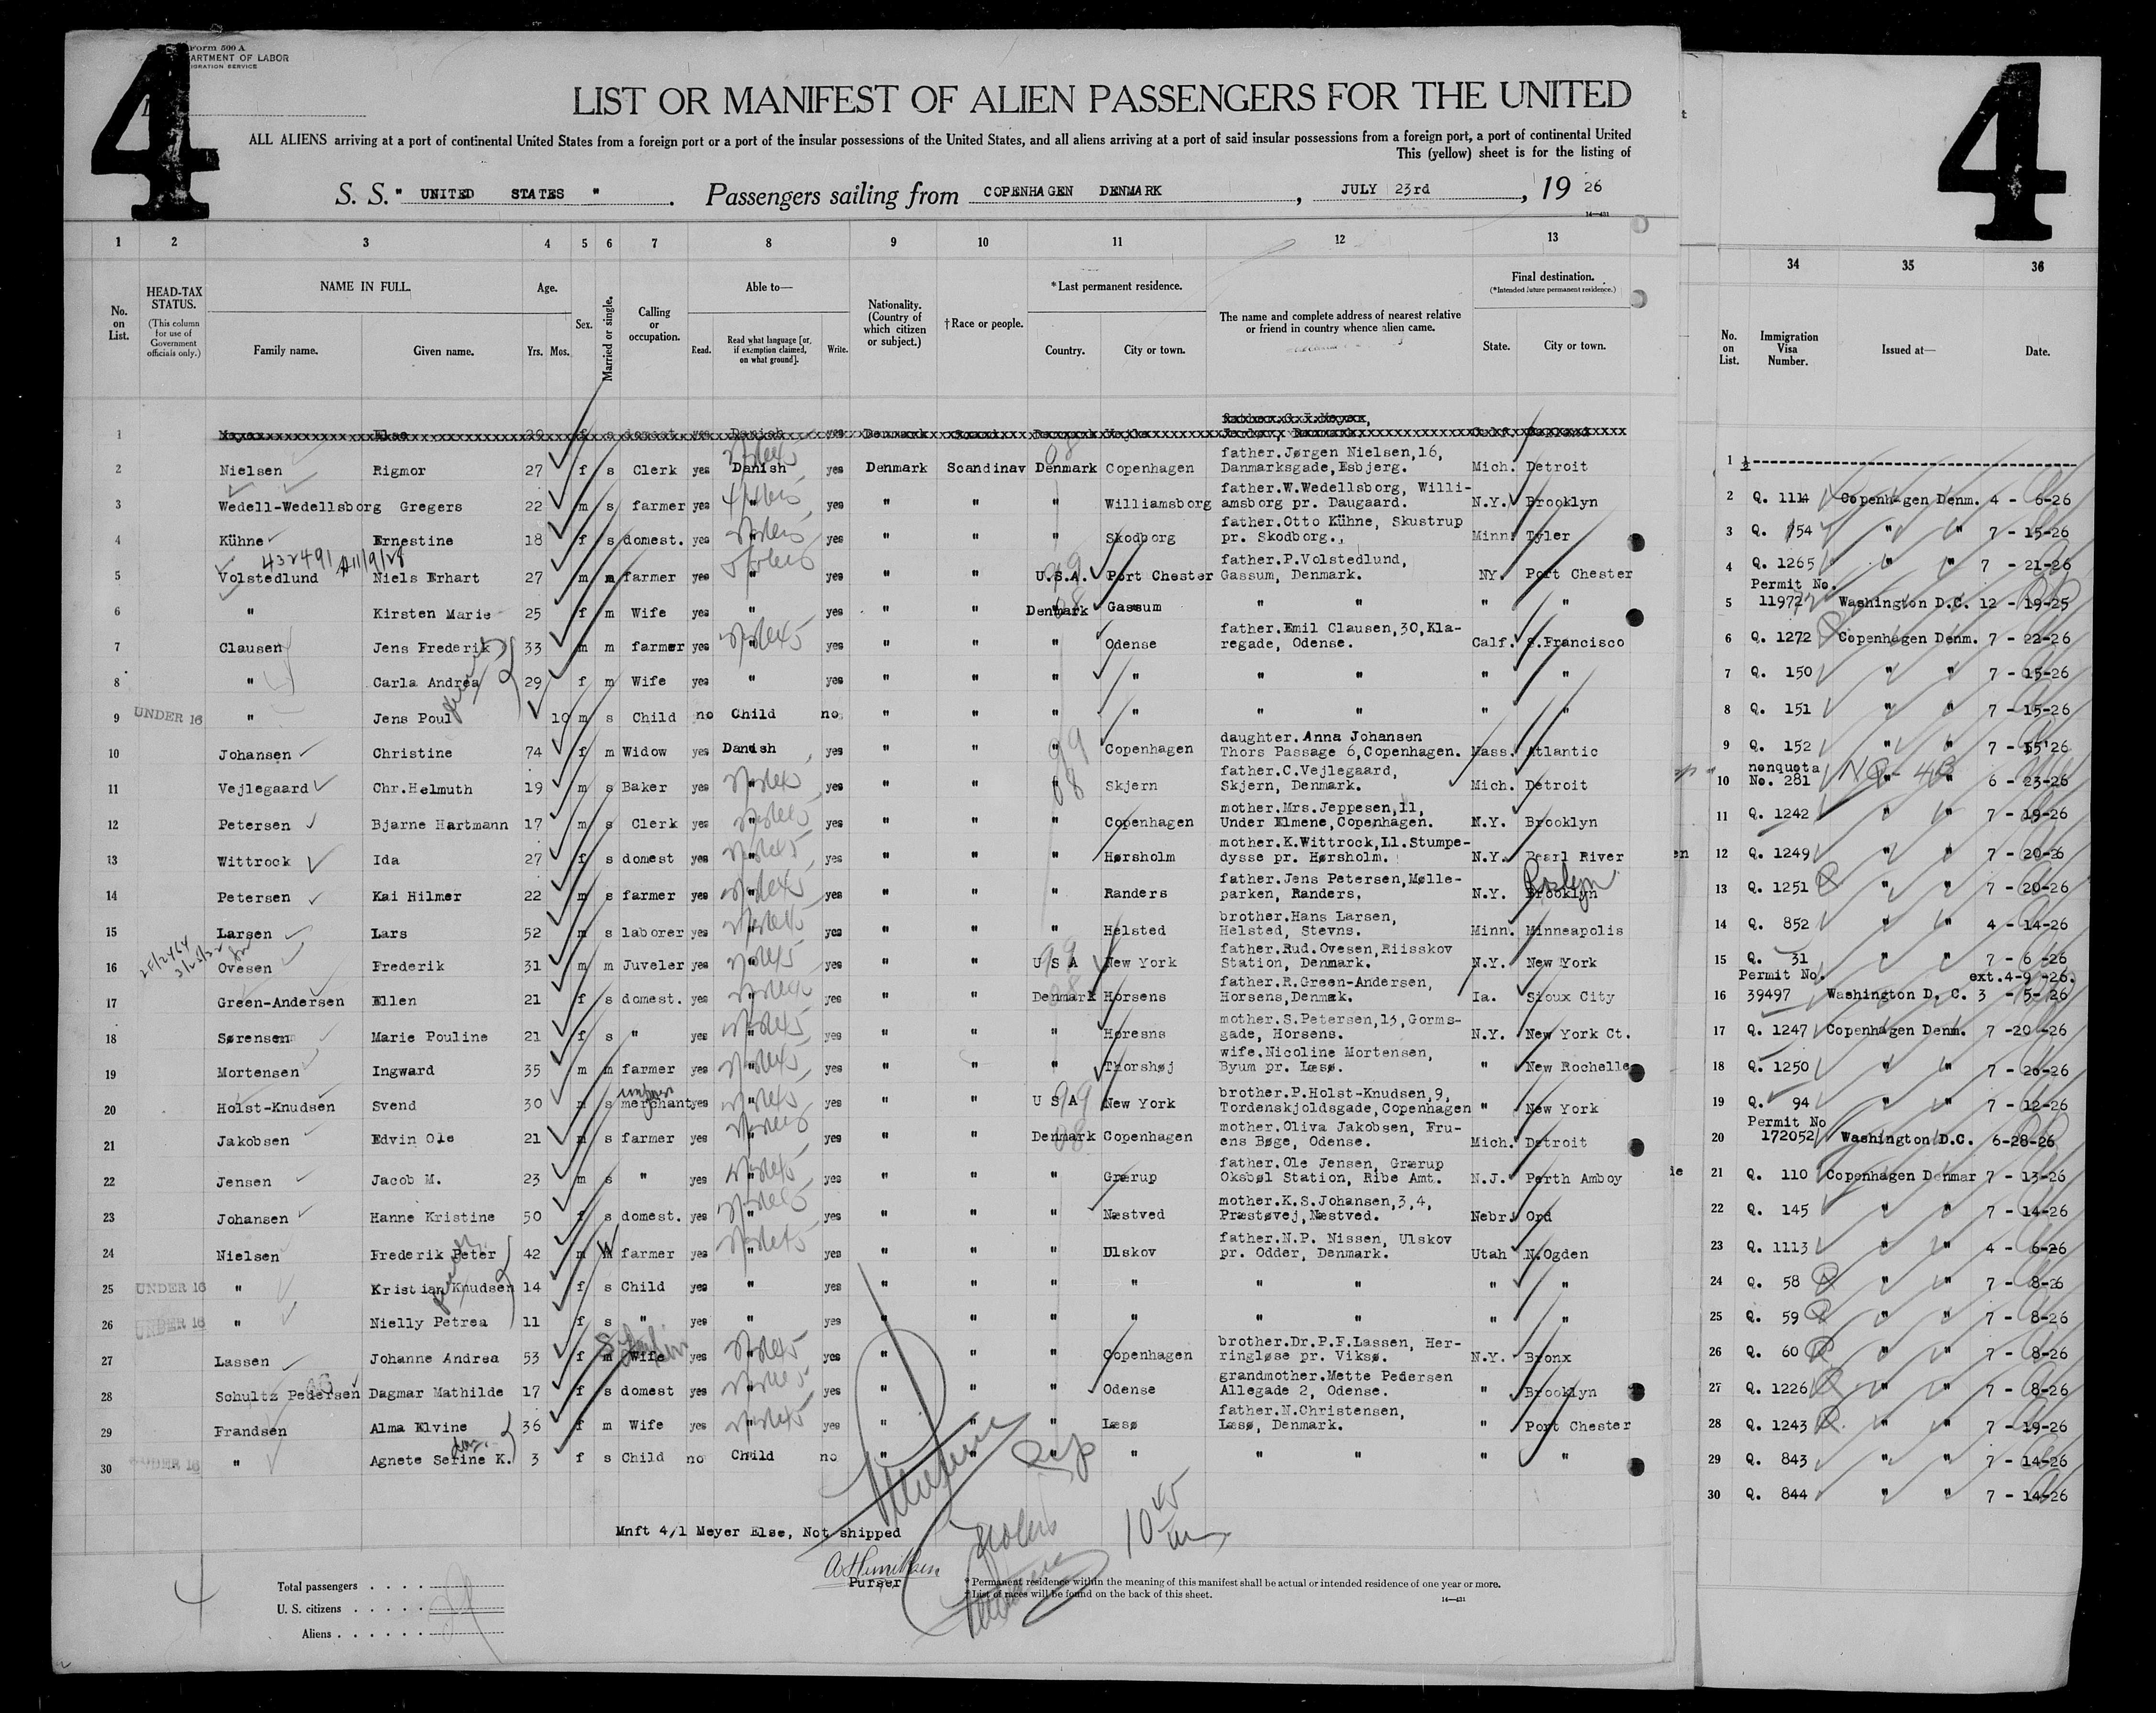 4
Form 500 A
DEPARTMENT OF LABOR
IMMIGRATION SERVICE
LIST OR MANIFEST OF ALIEN PASSENGERS FOR THE UNITED
ALL ALIENS arriving at a port of continental United States from a foreign port or a port of the insular possessions of the United States, and all aliens arriving at a port of said insular possessions from a foreign port, a port of continental United
This (yellow) sheet is for the listing of
S. S. " UNITED STATES " . Passengers sailing from COPENHAGEN DENMARK , JULY 23rd , 19 26
14—431
1 2 3 4 5 6 7 8 9 10 11 12 13
No. on List. HEAD-TAX STATUS. (This column for use of Government officials only.) NAME IN FULL. Family name. Given name. Age. Yrs. Mos. Sex. Married or single. Calling or occupation. Able to— Read. Read what language [or, if exemption claimed, on what ground]. Write. Nationality. (Country of which citizen or subject.) †Race or people. *Last permanent residence. Country. City or town. The name and complete address of nearest relative or friend in country whence alien came. Final destination. (*Intended future permanent residence.) State. City or town.
1
father.Jørgen Nielsen,16,
2 Nielsen Rigmor 27 f s Clerk yes Danish yes Denmark Scandinav Denmark Copenhagen Danmarksgade,Esbjerg. Mich. Detroit
father.W.Wedellsborg, Willi-
3 Wedell-Wedellsborg Gregers 22 m s farmer yes " yes " " " Williamsborg amsborg pr. Daugaard. N.Y. Brooklyn
father.Otto Kühne, Skustrup
4 Kühne Ernestine 18 f s domest. yes " yes " " " Skodborg pr. Skodborg., Minn. Tyler
432491 11/9/28
father.P.Volstedlund,
5 Volstedlund Niels Erhart 27 m m farmer yes " yes " " U.S.A. Port Chester Gassum, Denmark. NY. Port Chester
6 " Kirsten Marie 25 f m Wife yes " yes " " Denmark Gassum " " " "
father.Emil Clausen,30,Kla-
7 Clausen Jens Frederik 33 m m farmer yes " yes " " " Odense regade, Odense. Calf. S.Francisco
8 " Carla Andrea 29 f m Wife yes " yes " " " " " " " "
9 UNDER 16 " Jens Poul 10 m s Child no Child no " " " " " " " "
daughter.Anna Johansen
10 Johansen Christine 74 f m Widow yes Danish yes " " " Copenhagen Thors Passage 6,Copenhagen. Mass. Atlantic
father.C.Vejlegaard,
11 Vejlegaard Chr.Helmuth 19 m s Baker yes " yes " " " Skjern Skjern, Denmark. Mich. Detroit
mother.Mrs.Jeppesen,11,
12 Petersen Bjarne Hartmann 17 m s Clerk yes " yes " " " Copenhagen Under Elmene,Copenhagen. N.Y. Brooklyn
mother.K.Wittrock,Ll.Stumpe-
13 Wittrock Ida 27 f s domest yes " yes " " " Hørsholm dysse pr. Hørsholm. N.Y. Pearl River
father.Jens Petersen,Mølle-
Roslyn
14 Petersen Kai Hilmer 22 m s farmer yes " yes " " " Randers parken, Randers. N.Y. Brooklyn
brother.Hans Larsen,
15 Larsen Lars 52 m s laborer yes " yes " " " Helsted Helsted, Stevns. Minn. Minneapolis
father.Rud.Ovesen,Riisskov
16 Ovesen Frederik 31 m m Juveler yes " yes " " U S A New York Station, Denmark. N.Y. New York
father.R.Green-Andersen,
17 Green-Andersen Ellen 21 f s domest. yes " yes " " Denmark Horsens Horsens,Denmak. Ia. Sioux City
mother.S.Petersen,13,Gorms-
18 Sørensen Marie Pouline 21 f s " yes " yes " " " Horesns gade, Horsens. N.Y. New York Ct.
wife.Nicoline Mortensen,
19 Mortensen Ingward 35 m m farmer yes " yes " " " Thorshøj Byum pr. Læsø. " New Rochelle
brother.P.Holst-Knudsen,9,
20 Holst-Knudsen Svend 30 m s merchant yes " yes " " U S A New York Tordenskjoldsgade,Copenhagen " New York
mother.Oliva Jakobsen, Fru-
21 Jakobsen Edvin Ole 21 m s farmer yes " yes " " Denmark Copenhagen ens Bøge, Odense. Mich. Detroit
father.Ole Jensen, Grærup
22 Jensen Jacob M. 23 m s " yes " yes " " " Grærup Oksbøl Station, Ribe Amt. N.J. Perth Amboy
mother.K.S.Johansen,3,4,
23 Johansen Hanne Kristine 50 f s domest. yes " yes " " " Næstved Præstøvej,Næstved. Nebr. Ord
father.N.P. Nissen, Ulskov
24 Nielsen Frederik Peter 42 m W farmer yes " yes " " " Ulskov pr. Odder, Denmark. Utah N.Ogden
25 UNDER 16 " Kristian Knudsen 14 f s Child yes " yes " " " " " " " "
26 UNDER 16 " Nielly Petrea 11 f s " yes " yes " " " " " " " "
brother.Dr.P.F.Lassen, Her-
27 Lassen Johanne Andrea 53 f m Wife yes " yes " " " Copenhagen ringløse pr. Viksø. N.Y. Bronx
grandmother.Mette Pedersen
28 Schultz Pedersen Dagmar Mathilde 17 f s domest yes " yes " " " Odense Allegade 2, Odense. " Brooklyn
father.N.Christensen,
29 Frandsen Alma Elvine 36 f m Wife yes " yes " " " Læsø Læsø, Denmark. " Port Chester
30 UNDER 16 " Agnete Sefine K. 3 f s Child no Child no " " " " " " " "
Mnft 4/1 Meyer Else, Not shipped
Purser
10 45
Total passengers . . . .
U. S. citizens . . . . .
Aliens . . . . . .
* Permanent residence within the meaning of this manifest shall be actual or intended residence of one year or more.
† List of races will be found on the back of this sheet.
14—431
4
34 35 36
No. on List. Immigration Visa Number. Issued at— Date.
1
2 Q. 1114 Copenhagen Denm. 4 - 6-26
3 Q. 154 " " 7 - 15-26
4 Q. 1265 " " 7 - 21-26
Permit No.
5 11972 Washington D.C. 12 - 19-25
6 Q. 1272 Copenhagen Denm. 7 - 22-26
7 Q. 150 " " 7 - 15-26
8 Q. 151 " " 7 - 15-26
9 Q. 152 " " 7 - 15-26
nonquota
10 No. 281 NQ - 4B " " 6 - 23-26
11 Q. 1242 " " 7 - 19-26
12 Q. 1249 " " 7 - 20-26
13 Q. 1251 " " 7 - 20-26
14 Q. 852 " " 4 - 14-26
15 Q. 31 " " 7 - 6 -26
Permit No. ext.4-9 -26.
16 39497 Washington D. C. 3 - 5- 26
17 Q. 1247 Copenhagen Denm. 7 -20 -26
18 Q. 1250 " " 7 - 20-26
19 Q. 94 " " 7 - 12-26
Permit No
20 172052 Washington D.C. 6-28-26
21 Q. 110 Copenhagen Denmar 7 - 13-26
22 Q. 145 " " 7 - 14-26
23 Q. 1113 " " 4 - 6-26
24 Q. 58 " " 7 - 8-26
25 Q. 59 " " 7 - 8-26
26 Q. 60 " " 7 - 8-26
27 Q. 1226 " " 7 - 8-26
28 Q. 1243 " " 7 - 19-26
29 Q. 843 " " 7 - 14-26
30 Q. 844 " " 7 - 14-26